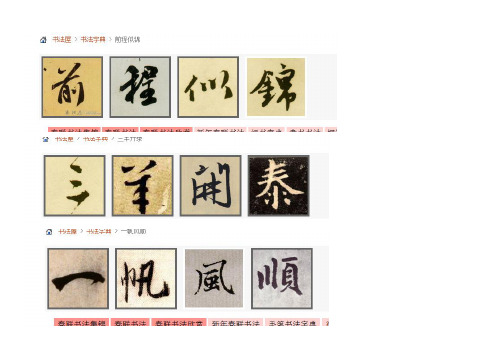 书法屋 > 书法字典 > 前程似锦
前 程 似 錦
春联书法集锦 春联书法 春联书法欣赏 新年春联书法
书法屋 > 书法字典 > 三羊开泰
三 羊 開 泰
书法屋 > 书法字典 > 一帆风顺
一 帆 風 順
春联书法集锦 春联书法 春联书法欣赏 新年春联书法 毛笔书法字典